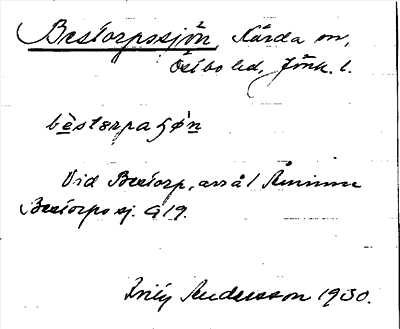 Bestorpssjön, Kärda sn,
Östbo hd, Jönk. l.
bèsterpaʃø̀n
Vid Bestorp, avså l Ånimne
Bestorps sj. G 19.
Andersson 1930.